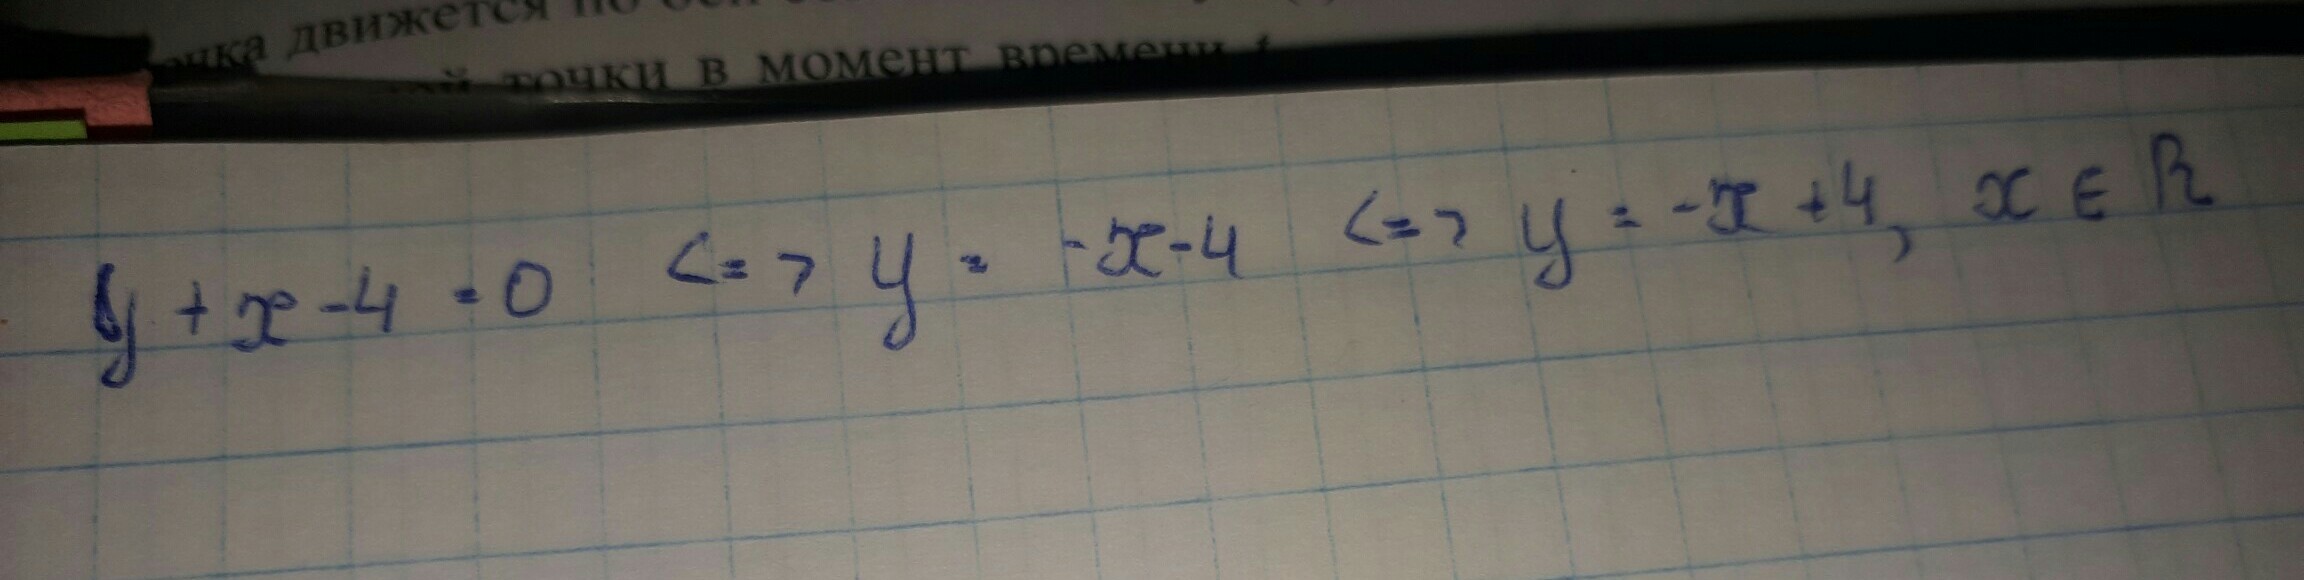 точка движется по оси
точки в момент времени t
y + x - 4 = 0 <=> y = -x - 4 <=> y = -x + 4, x ∈ R